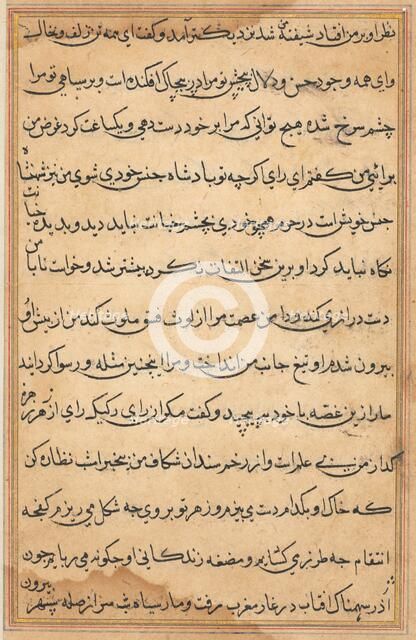 نظر او بر من افتاد شیفتهٔ من شد نزدیک تر آمد و گفت ای همه تن زلف و خال
وای همه وجود حسن و دلال پیچش تو مرا در پیچاک افکنده است و بر سیاهی تو مرا
چشم سرخ شده هیچ توانی که مرا بر خود دست دهی و یکساعت کرد غرض من
برائی من گفتم ای رای کرچه تو پادشاه جنس خودی شوی من نیز شهنشاه
جنس خویش است در حرم همچو خودی بچشم خیانت نباید دید و بدیده خیانت
نکاه نباید کرد او برین سخن التفات نکرد پیشتر شد و خواست تا با من
دست درازی کند و دامن عصمت مرا از لوث فسق ملوث کند من از پیش او
بیرون شدم او تیغ جانب من انداخت و مرا اینچنین مثله و رسوا کردانید
مار ازین غصه با خود بپیچید و گفت مکو از رای رکیک رای از زهر زهره
کدار من بی علم است و از زخم سندان شکاف من بیخبر امشب نظاره کن
که خاک او بکدام دست بیزم و زهر تو بروی چه شکل می ریزم کنجه
انتقام چه طرز می کشایم و مضغه زندکانی او چکونه می ربایم چون
اژدر سهمناک افتاب در غار مغرب رفت و مار سیاه شب سر از صله سپهر بیرون